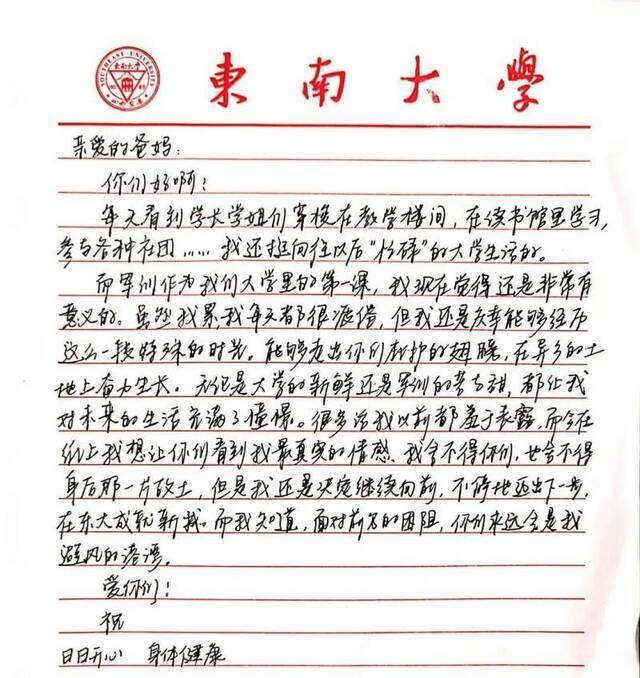 SOUTHEAST UNIVERSITY
東南大學
東南大學
亲爱的爸妈:
你们好啊!
每天看到学长学姐们穿梭在教学楼间,在读书馆里学习,
参与各种社团……我还挺向往以后“忙碌”的大学生活的。
而军训作为我们大学里的第一课,我现在觉得还是非常有
意义的。虽然我累,我每天都很疲惫,但我还是庆幸能够经历
这么一段特殊的时光。能够走出你们救护的翅膀,在异乡的土
地上奋力生长。无论是大学的新鲜还是军训的苦与甜,都让我
对未来的生活充满了憧憬。很多话我以前都羞于表露,而今在
纸上我想让你们看到我最真实的情感。我舍不得你们,也舍不得
身后那一片故土,但是我还是决定继续向前,不停地迈出下一步,
在东大成就新我。而我知道,面对前方的困阻,你们永远会是我
避风的港湾。
爱你们!
祝
日日开心 身体健康